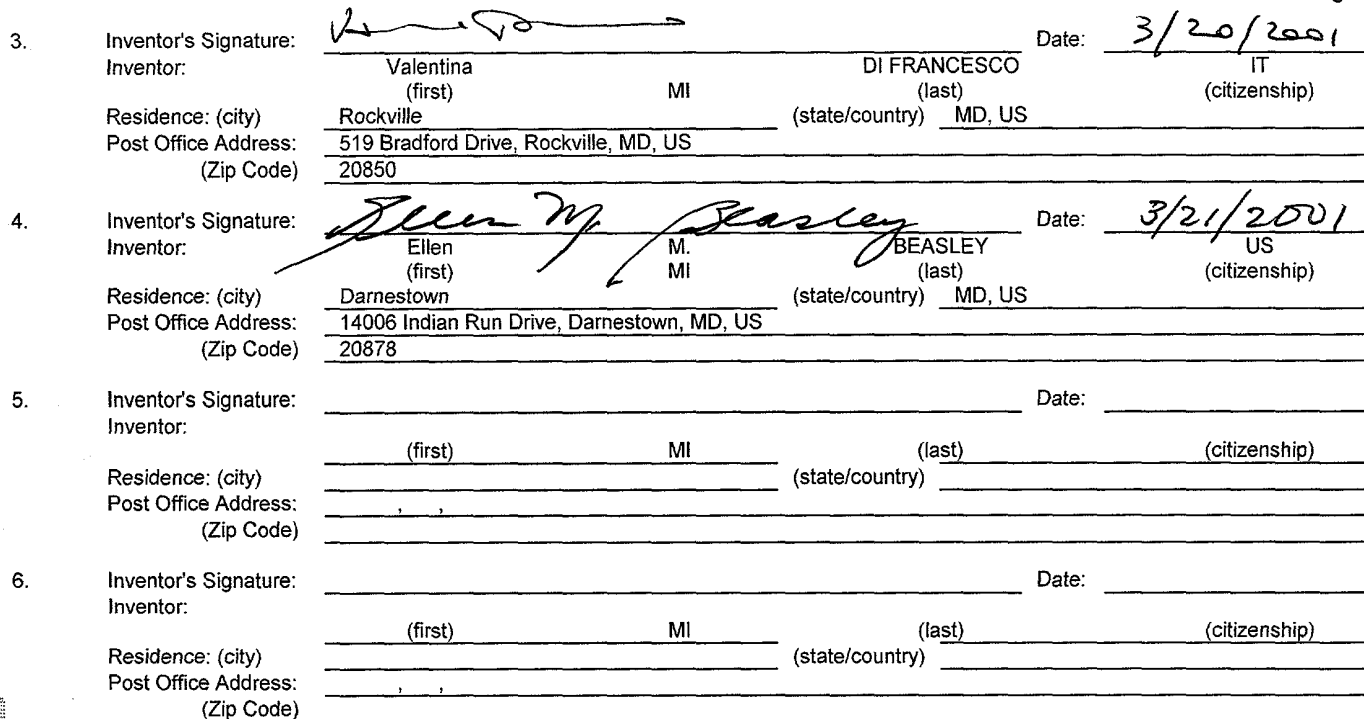 3. Inventor's Signature: Date: 3/20/2001
Inventor: Valentina DI FRANCESCO IT
(first) MI (last) (citizenship)
Residence: (city) Rockville (state/country) MD, US
Post Office Address: 519 Bradford Drive, Rockville, MD, US
(Zip Code) 20850
4. Inventor's Signature: Ellen M. Beasley Date: 3/21/2001
Inventor: Ellen M. BEASLEY US
(first) MI (last) (citizenship)
Residence: (city) Darnestown (state/country) MD, US
Post Office Address: 14006 Indian Run Drive, Darnestown, MD, US
(Zip Code) 20878
5. Inventor's Signature: Date:
Inventor:
(first) MI (last) (citizenship)
Residence: (city) (state/country)
Post Office Address: , ,
(Zip Code)
6. Inventor's Signature: Date:
Inventor:
(first) MI (last) (citizenship)
Residence: (city) (state/country)
Post Office Address: , ,
(Zip Code)